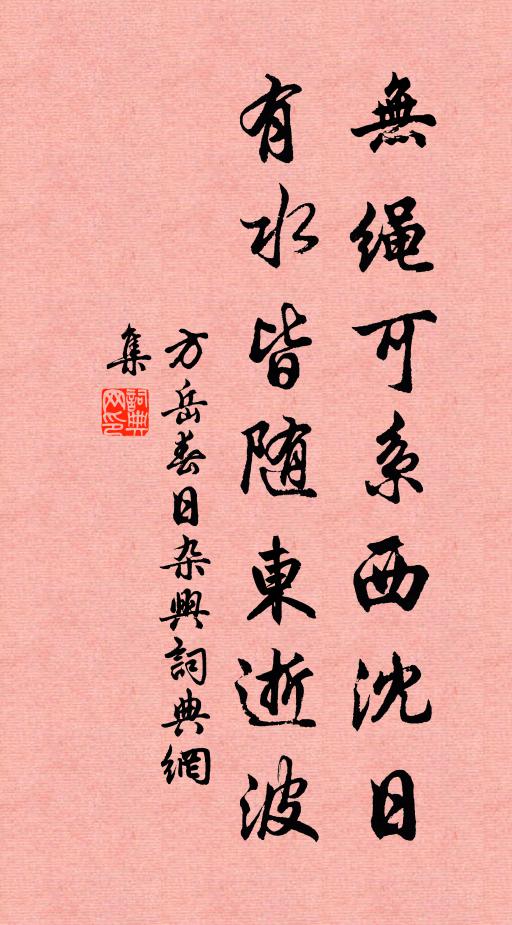 無绳可系西沈日
有水皆随東逝波
方岳春日杂興詞典網
集
詞典網印